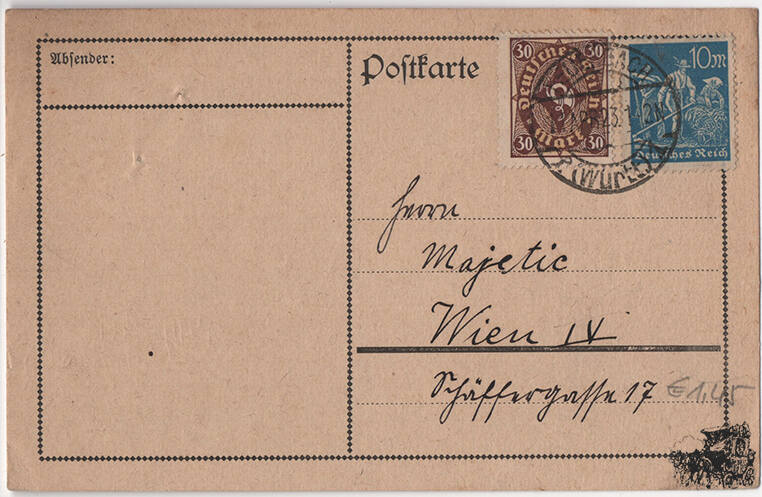 Absender:
Postkarte
30 30
Deutsches Reich
Mark
30 30
10 M
Deutsches Reich
(Württ)
Herrn
Majetic
Wien IV
Schäffergasse 17
€ 1,45